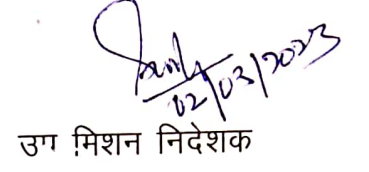 02/03/2023
उप मिशन निदेशक